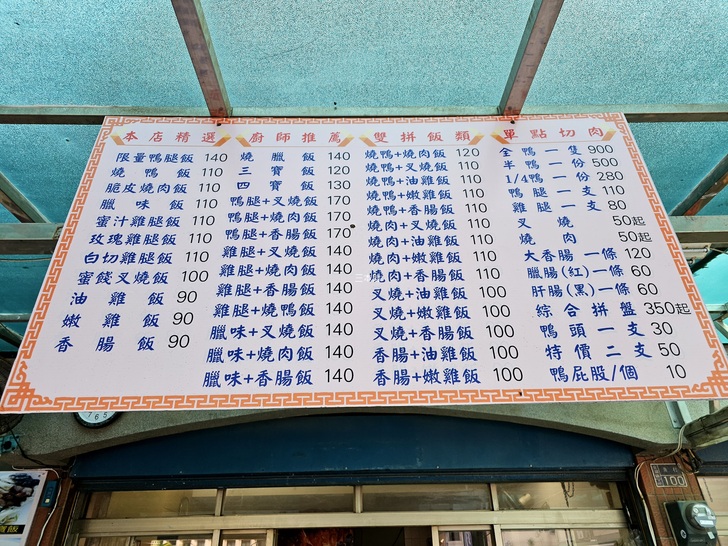 本店精選
限量鴨腿飯 140
燒鴨飯 110
脆皮燒肉飯 110
臘味飯 110
蜜汁雞腿飯 110
玫瑰雞腿飯 110
白切雞腿飯 110
蜜餞叉燒飯 100
油雞飯 90
嫩雞飯 90
香腸飯 90
廚師推薦
燒臘飯 140
三寶飯 120
四寶飯 130
鴨腿+叉燒飯 170
鴨腿+燒肉飯 170
鴨腿+香腸飯 170
雞腿+叉燒飯 140
雞腿+燒肉飯 140
雞腿+香腸飯 140
雞腿+燒鴨飯 140
臘味+叉燒飯 140
臘味+燒肉飯 140
臘味+香腸飯 140
雙拼飯類
燒鴨+燒肉飯 120
燒鴨+叉燒飯 110
燒鴨+油雞飯 110
燒鴨+嫩雞飯 110
燒鴨+香腸飯 110
燒肉+叉燒飯 110
燒肉+油雞飯 110
燒肉+嫩雞飯 110
燒肉+香腸飯 110
叉燒+油雞飯 100
叉燒+嫩雞飯 100
叉燒+香腸飯 100
香腸+油雞飯 100
香腸+嫩雞飯 100
單點切肉
全鴨一隻 900
半鴨一份 500
1/4鴨一份 280
鴨腿一支 110
雞腿一支 80
叉燒 50起
燒肉 50起
大香腸一條 120
臘腸(紅)一條 60
肝腸(黑)一條 60
綜合拼盤 350起
鴨頭一支 30
特價二支 50
鴨屁股/個 10
7 6 5
100